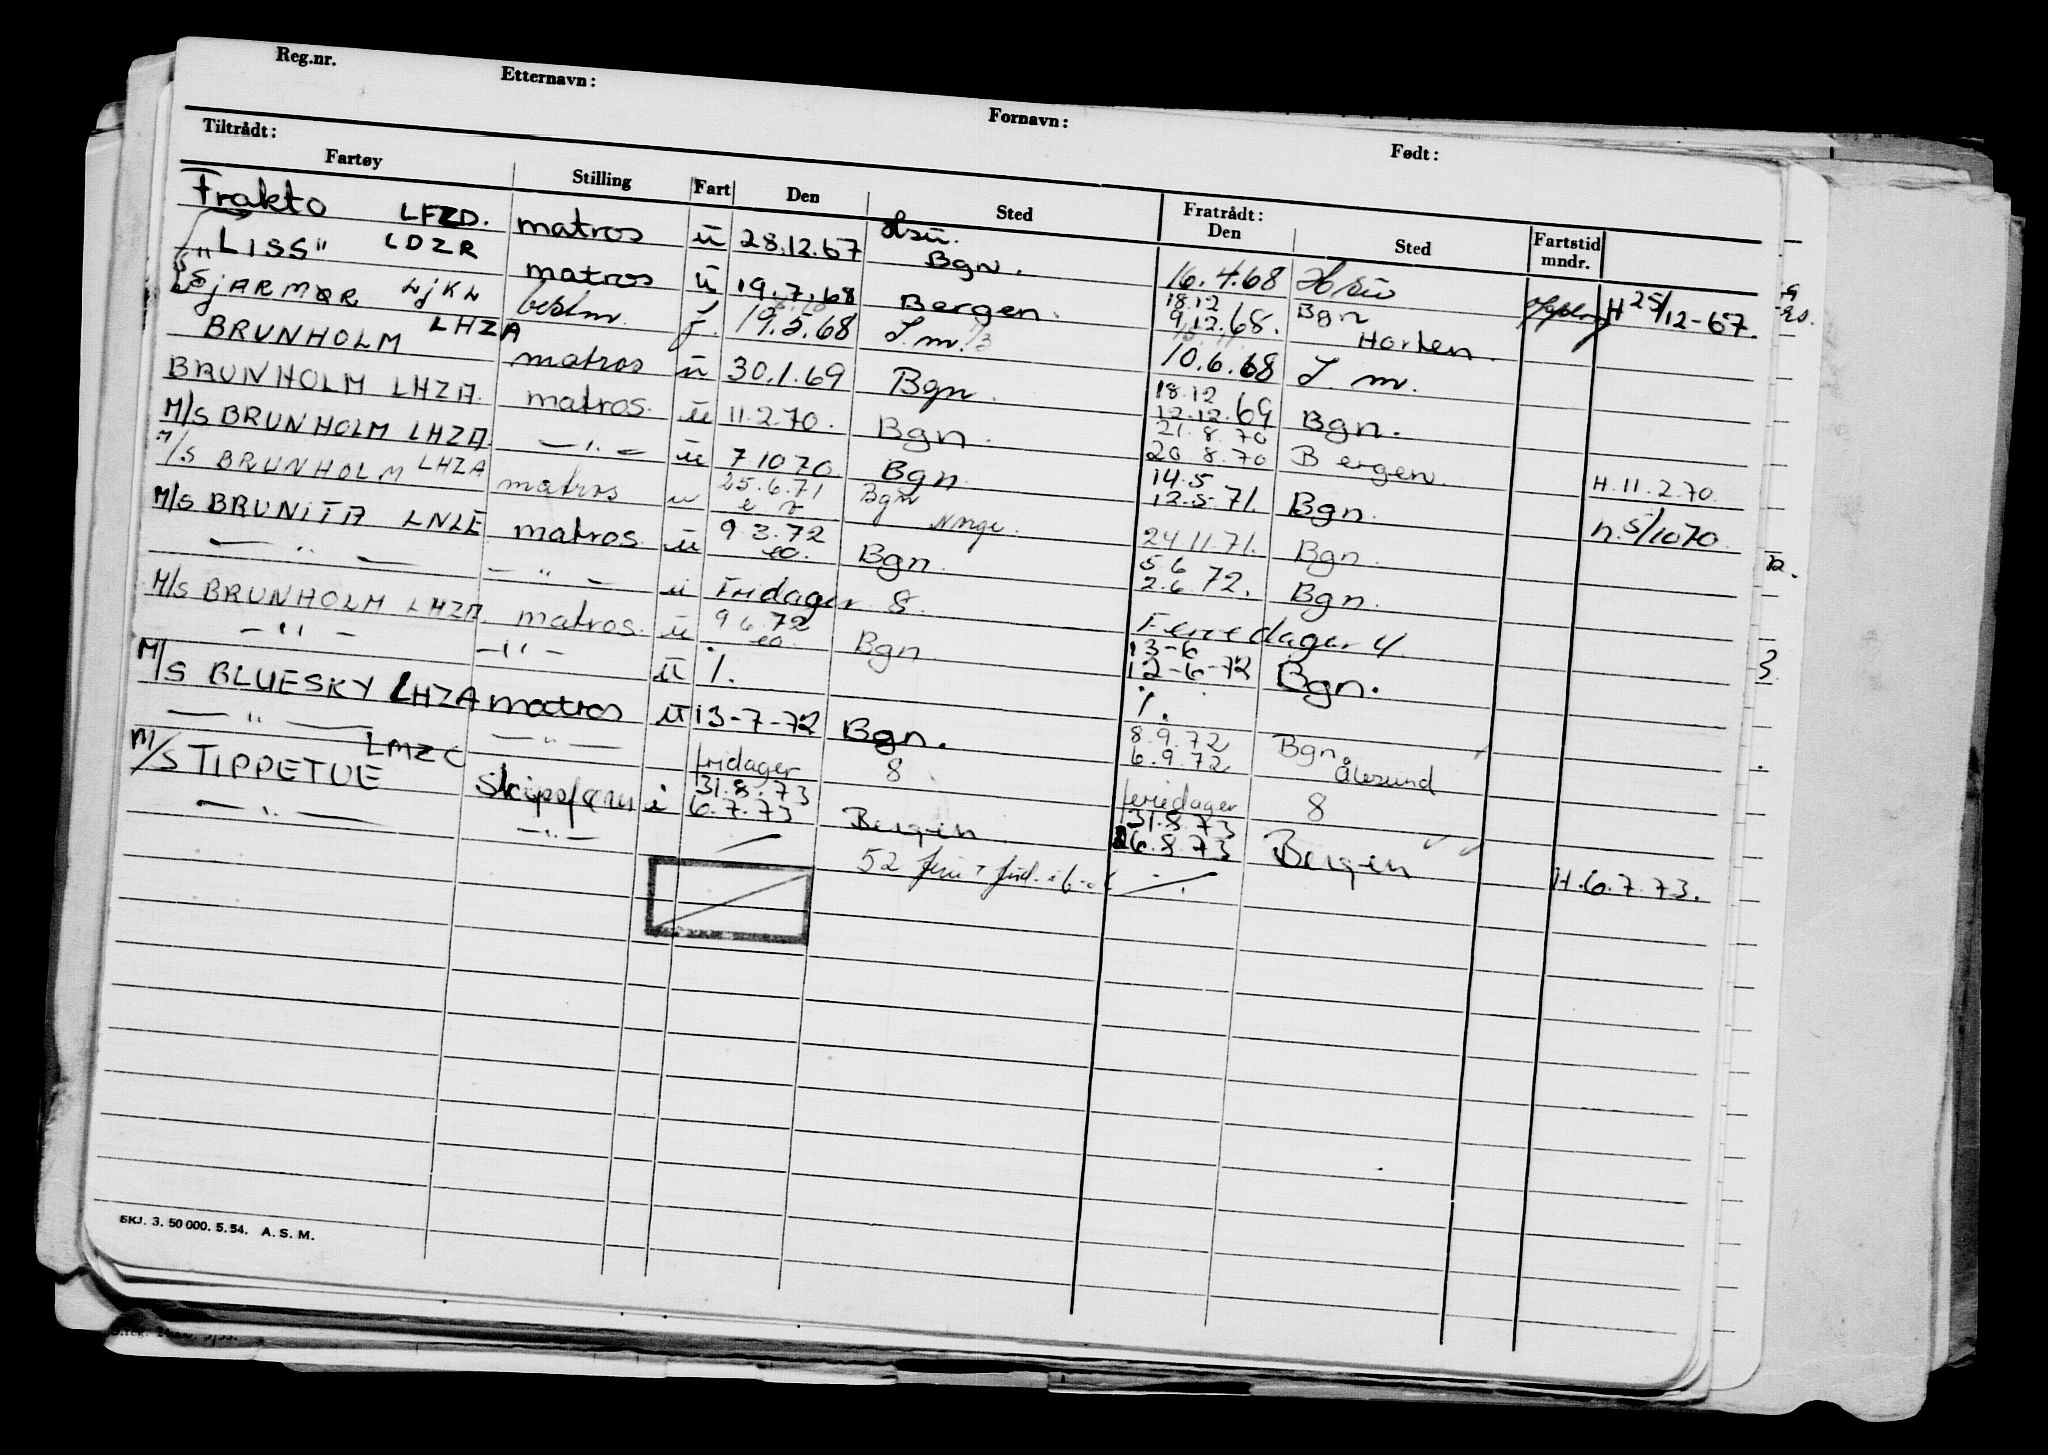 Reg.nr. Etternavn: Fornavn: Født:
Tiltrådt: Fratrådt:
Fartøy Stilling Fart Den Sted Den Sted Fartstid mndr.
Frakto LFZD. matros u 28.12.67 Bgn. 16.4.68 H 25/12-67.
"LISS" LDZR matros u 19.7.68 Bergen. 18.12 Bgn
9.12.68. Horten.
LJKL bestm. f. 19.5.68 J.m. 10.6.68 J.m.
BRUNHOLM LHZA matros u 30.1.69 Bgn. 18.12
12.12.69 Bgn.
BRUNHOLM LHZA. matros. u 11.2.70. Bgn. 21.8.70
20.8.70 Bergen. H.11.2.70.
M/S BRUNHOLM LHZA. — " — u 7.10.70. Bgn. 14.5
12.5.71. Bgn. n.5/1070.
M/S BRUNHOLM LHZA matros u 25.6.71 Bgn Norge. 24.11.71. Bgn.
M/S BRUNITA LNLE matros u 9.3.72 Bgn. 5.6
eo. 2.6.72. Bgn.
— " — — " — u Fridager 8. Feriedager 4
M/S BRUNHOLM LHZA. matros. u 9.6.72 Bgn. 13-6
eo. 12-6-72 Bgn.
— " — — " — u ·/. ·/.
M/S BLUESKY LHZA matros u 13-7-72 Bgn. 8.9.72 Bgn.
6.9.72 Ålesund
— " — — " — fridager 8 feriedager 8
M/S TIPPETUE LMZC Skipsfører i 31.8.73
6.7.73 Bergen 31.8.73
26.8.73 Bergen H.6.7.73.
— " — — " — ·/.
52
SKJ. 3. 50 000. 5. 54. A. S. M.